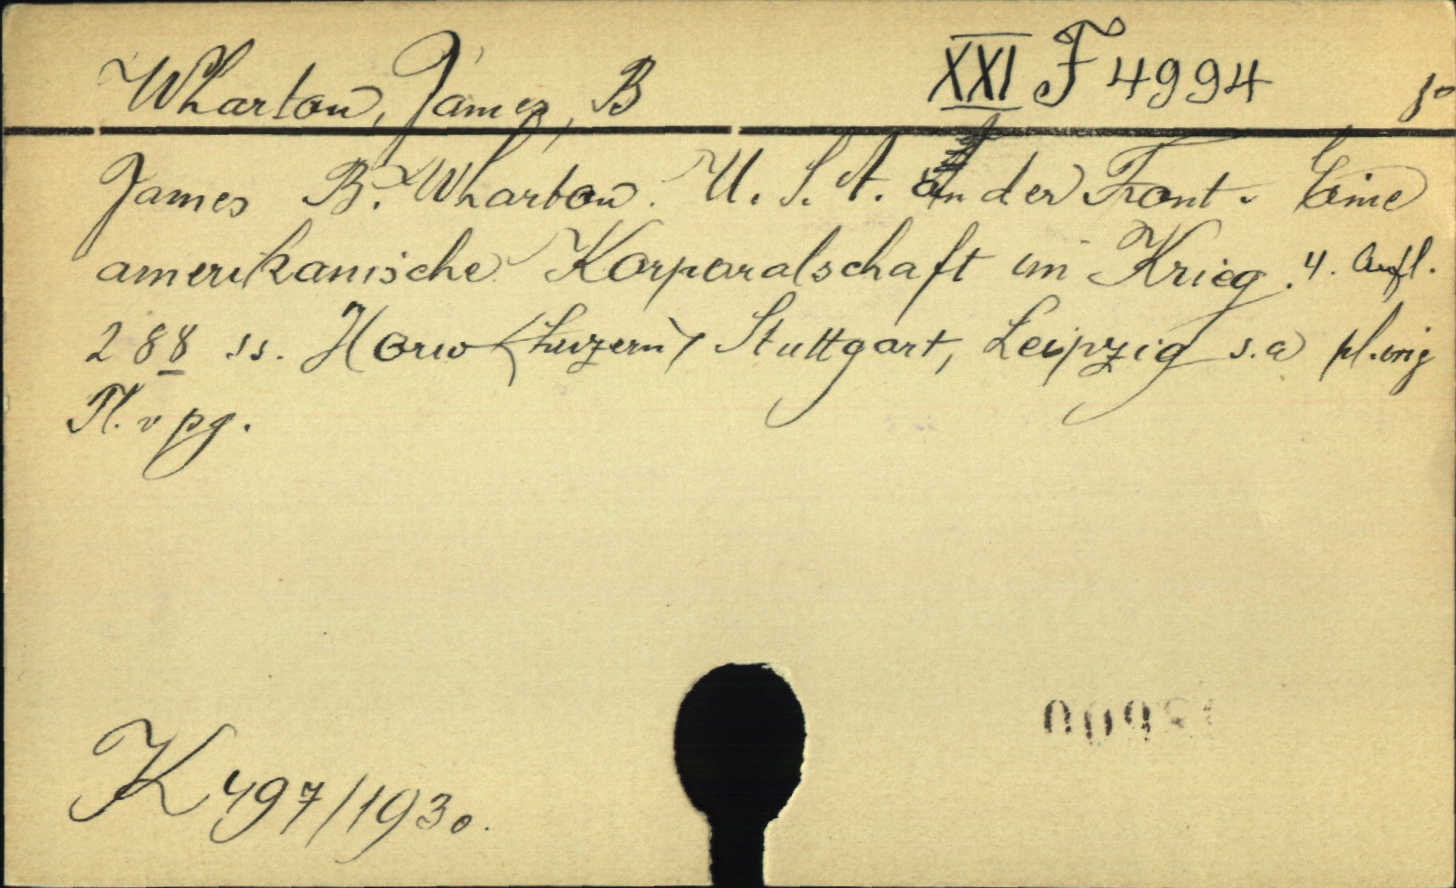 Wharton, James, B XXI F 4994
James B. Wharton. U. S. A. An der Front. Eine
amerikanische Korporalschaft im Krieg. 4. Aufl.
288 ss. Horw (Luzern) Stuttgart, Leipzig s.a pl.orig
Pl. v pg.
K 497/1930.